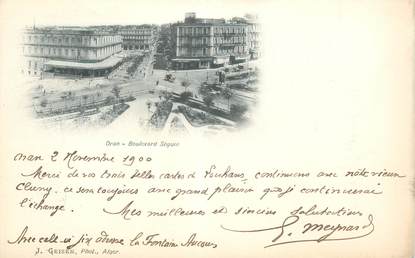 Oran - Boulevard Séguin
Oran 2 Novembre 1900
Merci de vos trois belles cartes de Louhans, continuons avec notre vieux
Cluny, ce sera toujours avec grand plaisir que je continuerai
l'échange. Mes meilleures et sincères salutations
Avec celle-ci six adresse La Fontaine
J. GEISER, Phot., Alger.